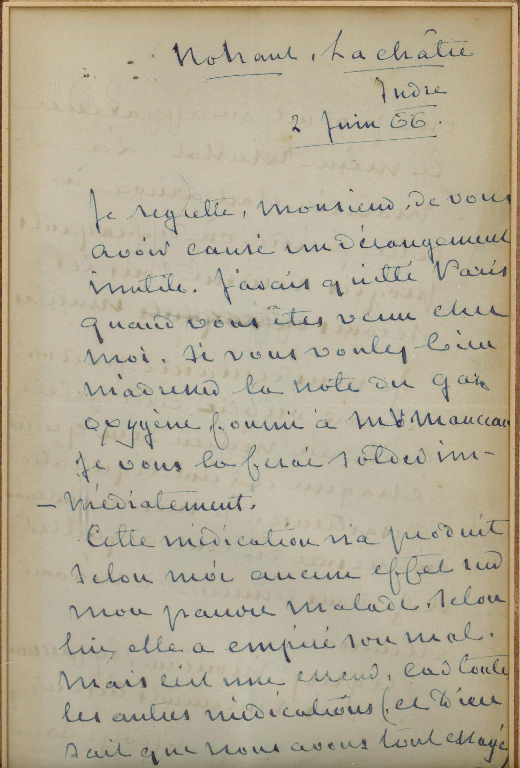 Nohant, La châtre
Indre
2 Juin 66.
Je regrette, monsieur, de vous
avoir causé un dérangement
inutile. J'avais quitté Paris
quand vous êtes venu chez
moi. Si vous voulez bien
m'adresser la note du gaz
oxygène fourni à Mr Manceau
je vous la ferai solder im-
-médiatement.
Cette médication n'a produit
selon moi aucun effet sur
mon pauvre malade. Selon
lui, elle a empiré son mal.
Mais c'est une erreur, car toutes
les autres médications (et Dieu
sait que nous avons tout essayé